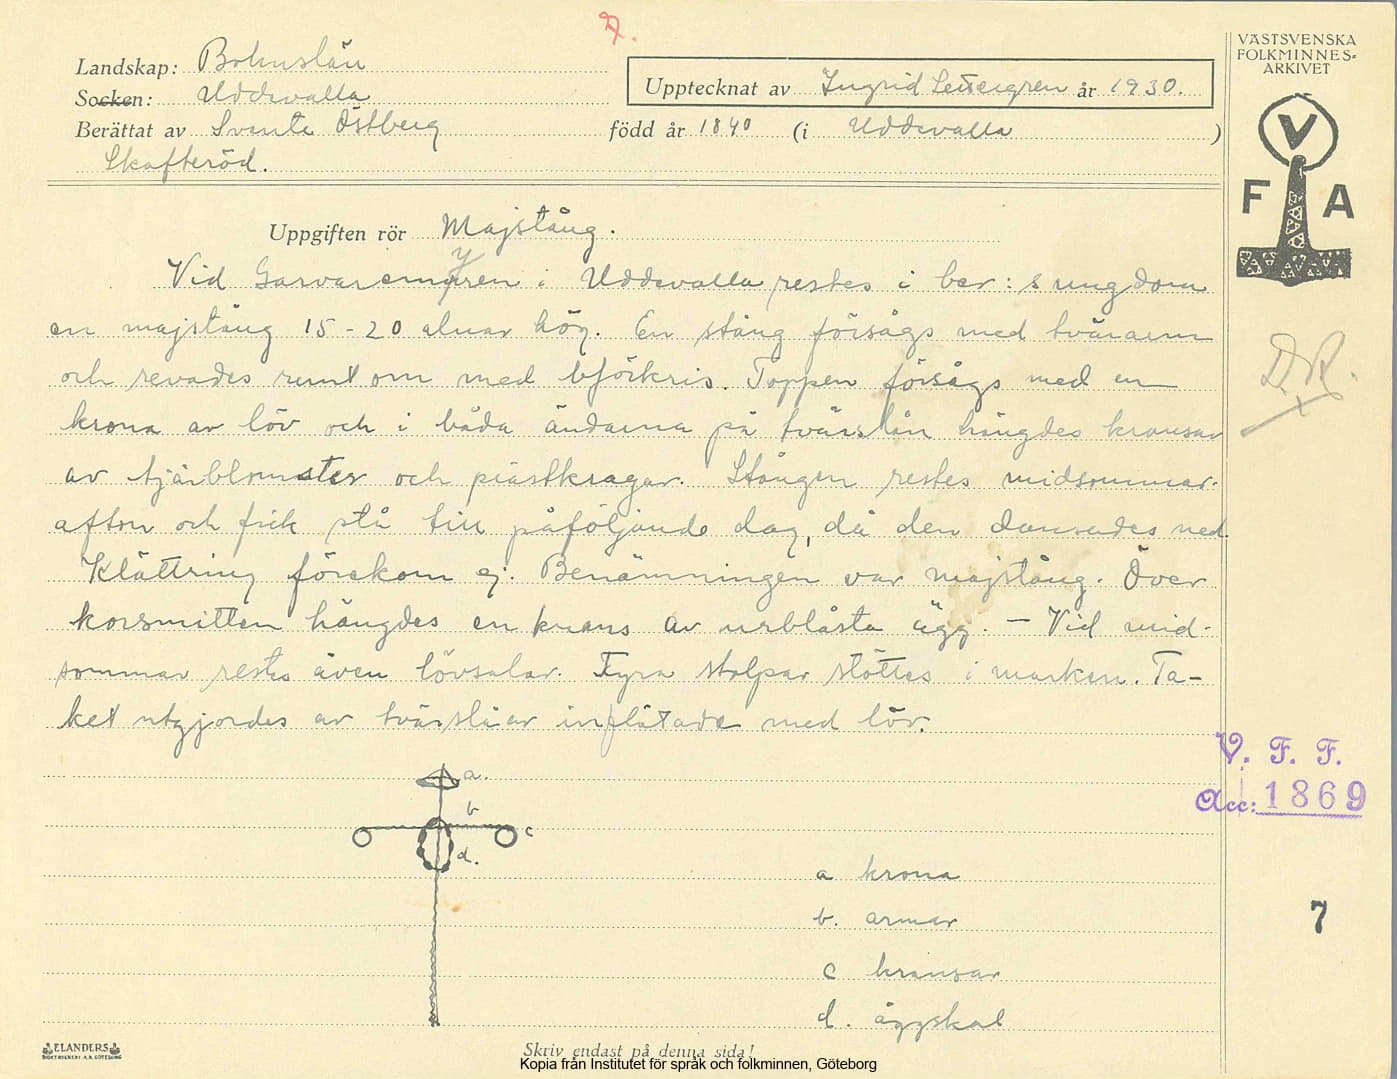 D.
VÄSTSVENSKA
FOLKMINNES-
ARKIVET
V
F A
Landskap: Bohuslän
Socken: Uddevalla
Upptecknat av Ingrid år 1930.
Berättat av Svante Östberg född år 1840 (i Uddevalla )
Skafteröd.
Uppgiften rör Majstång.
Vid i Uddevalla restes i ber:s ungdom
en majstång 15-20 alnar hög. En stång försågs med tvärarm
och revades runt om med björkris. Toppen försågs med en
krona av löv och i båda ändarna på tvärslån hängdes kransar
av tjärblomster och prästkragar. Stången restes midsommar-
afton och fick stå till påföljande dag, då den dansades ned.
Klättring förekom ej. Benämningen var majstång. Över
korsmitten hängdes en krans av urblåsta ägg. - Vid mid-
sommar restes även lövsalar. Fyra stolpar stöttes i marken. Ta-
ket utgjordes av tvärslåar inflätade med löv.
D.R.
V. F. F.
Acc: 1869
7
a.
b
c
d.
a krona
b. armar
c kransar
d. äggskal
ELANDERS
BOKTRYCKERI A.B. GÖTEBORG
Skriv endast på denna sida!
Kopia från Institutet för språk och folkminnen, Göteborg